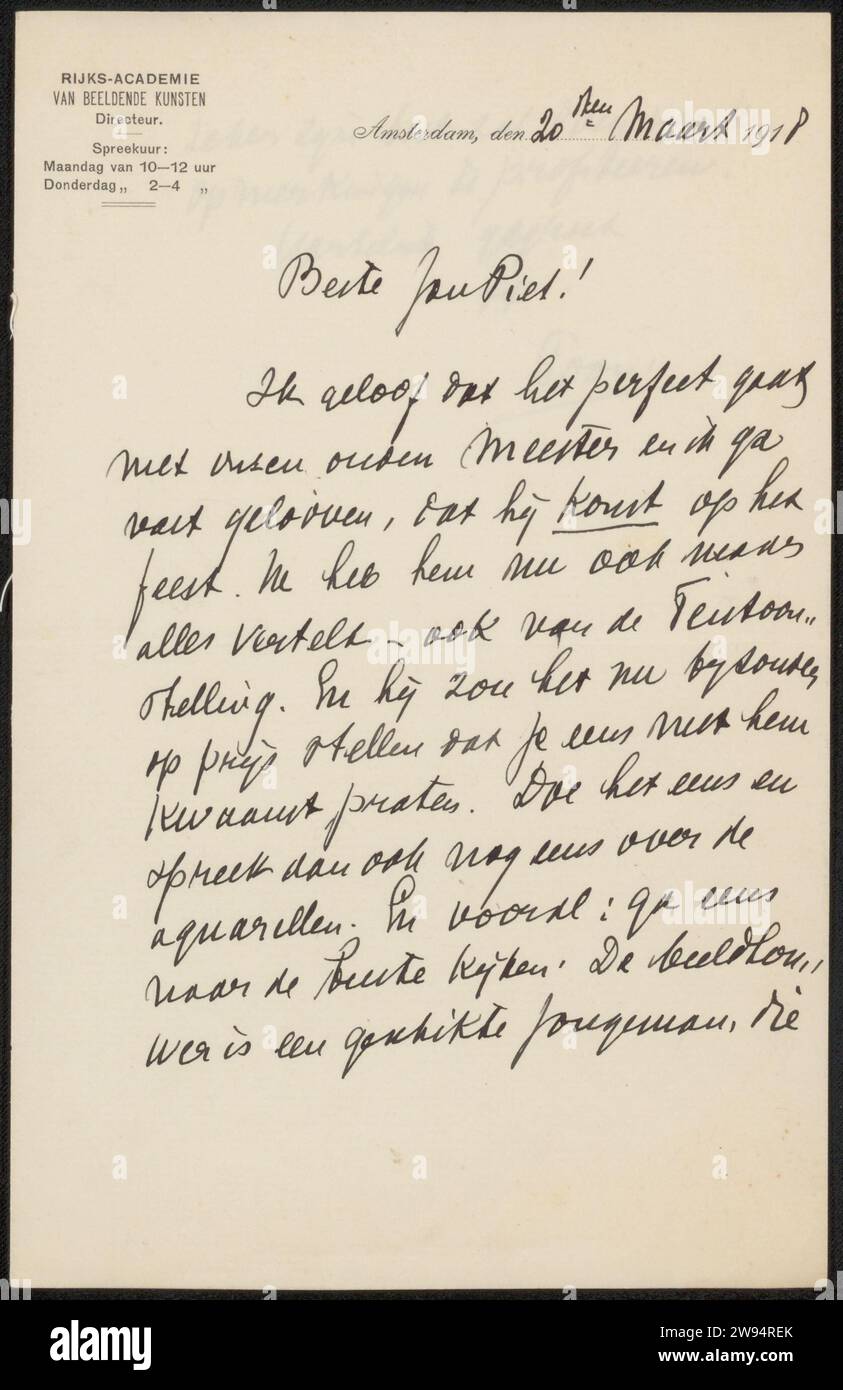 RIJKS-ACADEMIE
VAN BEELDENDE KUNSTEN
Directeur.
Spreekuur:
Maandag van 10—12 uur
Donderdag „ 2—4 „
Amsterdam, den 20sten Maart 1918
Beste Jan Piet!
Ik geloof dat het perfect gaat
met onzen ouden Meester en ik ga
vast gelooven, dat hij komt op het
feest. Ik heb hem nu ook
alles vertelt – ook van de Tentoon„
stelling. En hij zou het nu byzonder
op prijs stellen dat je eens met hem
kwaamt praten. Doe het eens en
spreek dan ook nog eens over de
aquarellen. En vooral: ga eens
naar de buste kijken. De beeldhou„
wer is een geschikte jongeman, die
alamy
Image ID: 2W94REK
www.alamy.com